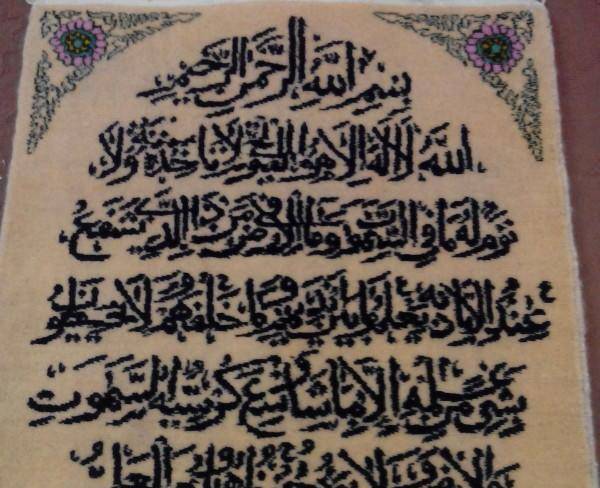 بسم الله الرحمن الرحيم
الله لا اله الا هو الحي القيوم لا تاخذه سنة ولا
نوم له ما في السموت وما في الارض من ذا الذي يشفع
عنده الا باذنه يعلم ما بين ايديهم وما خلفهم ولا يحيطون
بشئ من علمه الا بما شاء وسع كرسيه السموت
والارض ولا يؤده حفظهما وهو العلي